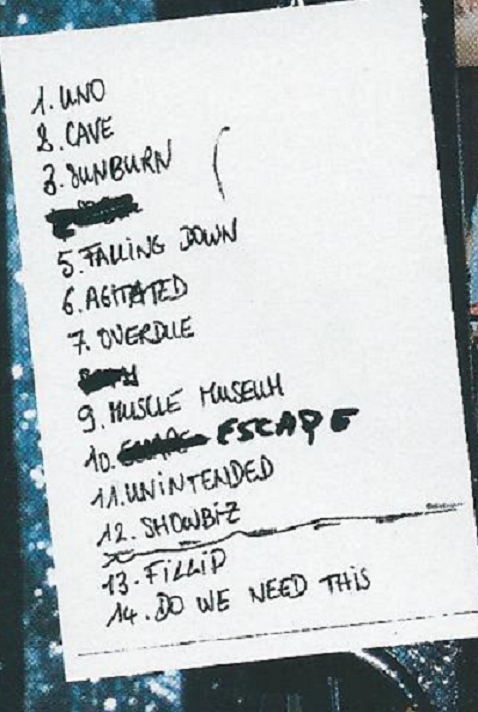 1. UNO
2. CAVE
3. SUNBURN
5. FALLING DOWN
6. AGITATED
7. OVERDUE
9. MUSCLE MUSEUM
10. ESCAPE
11. UNINTENDED
12. SHOWBIZ
13. FILLIP
14. DO WE NEED THIS